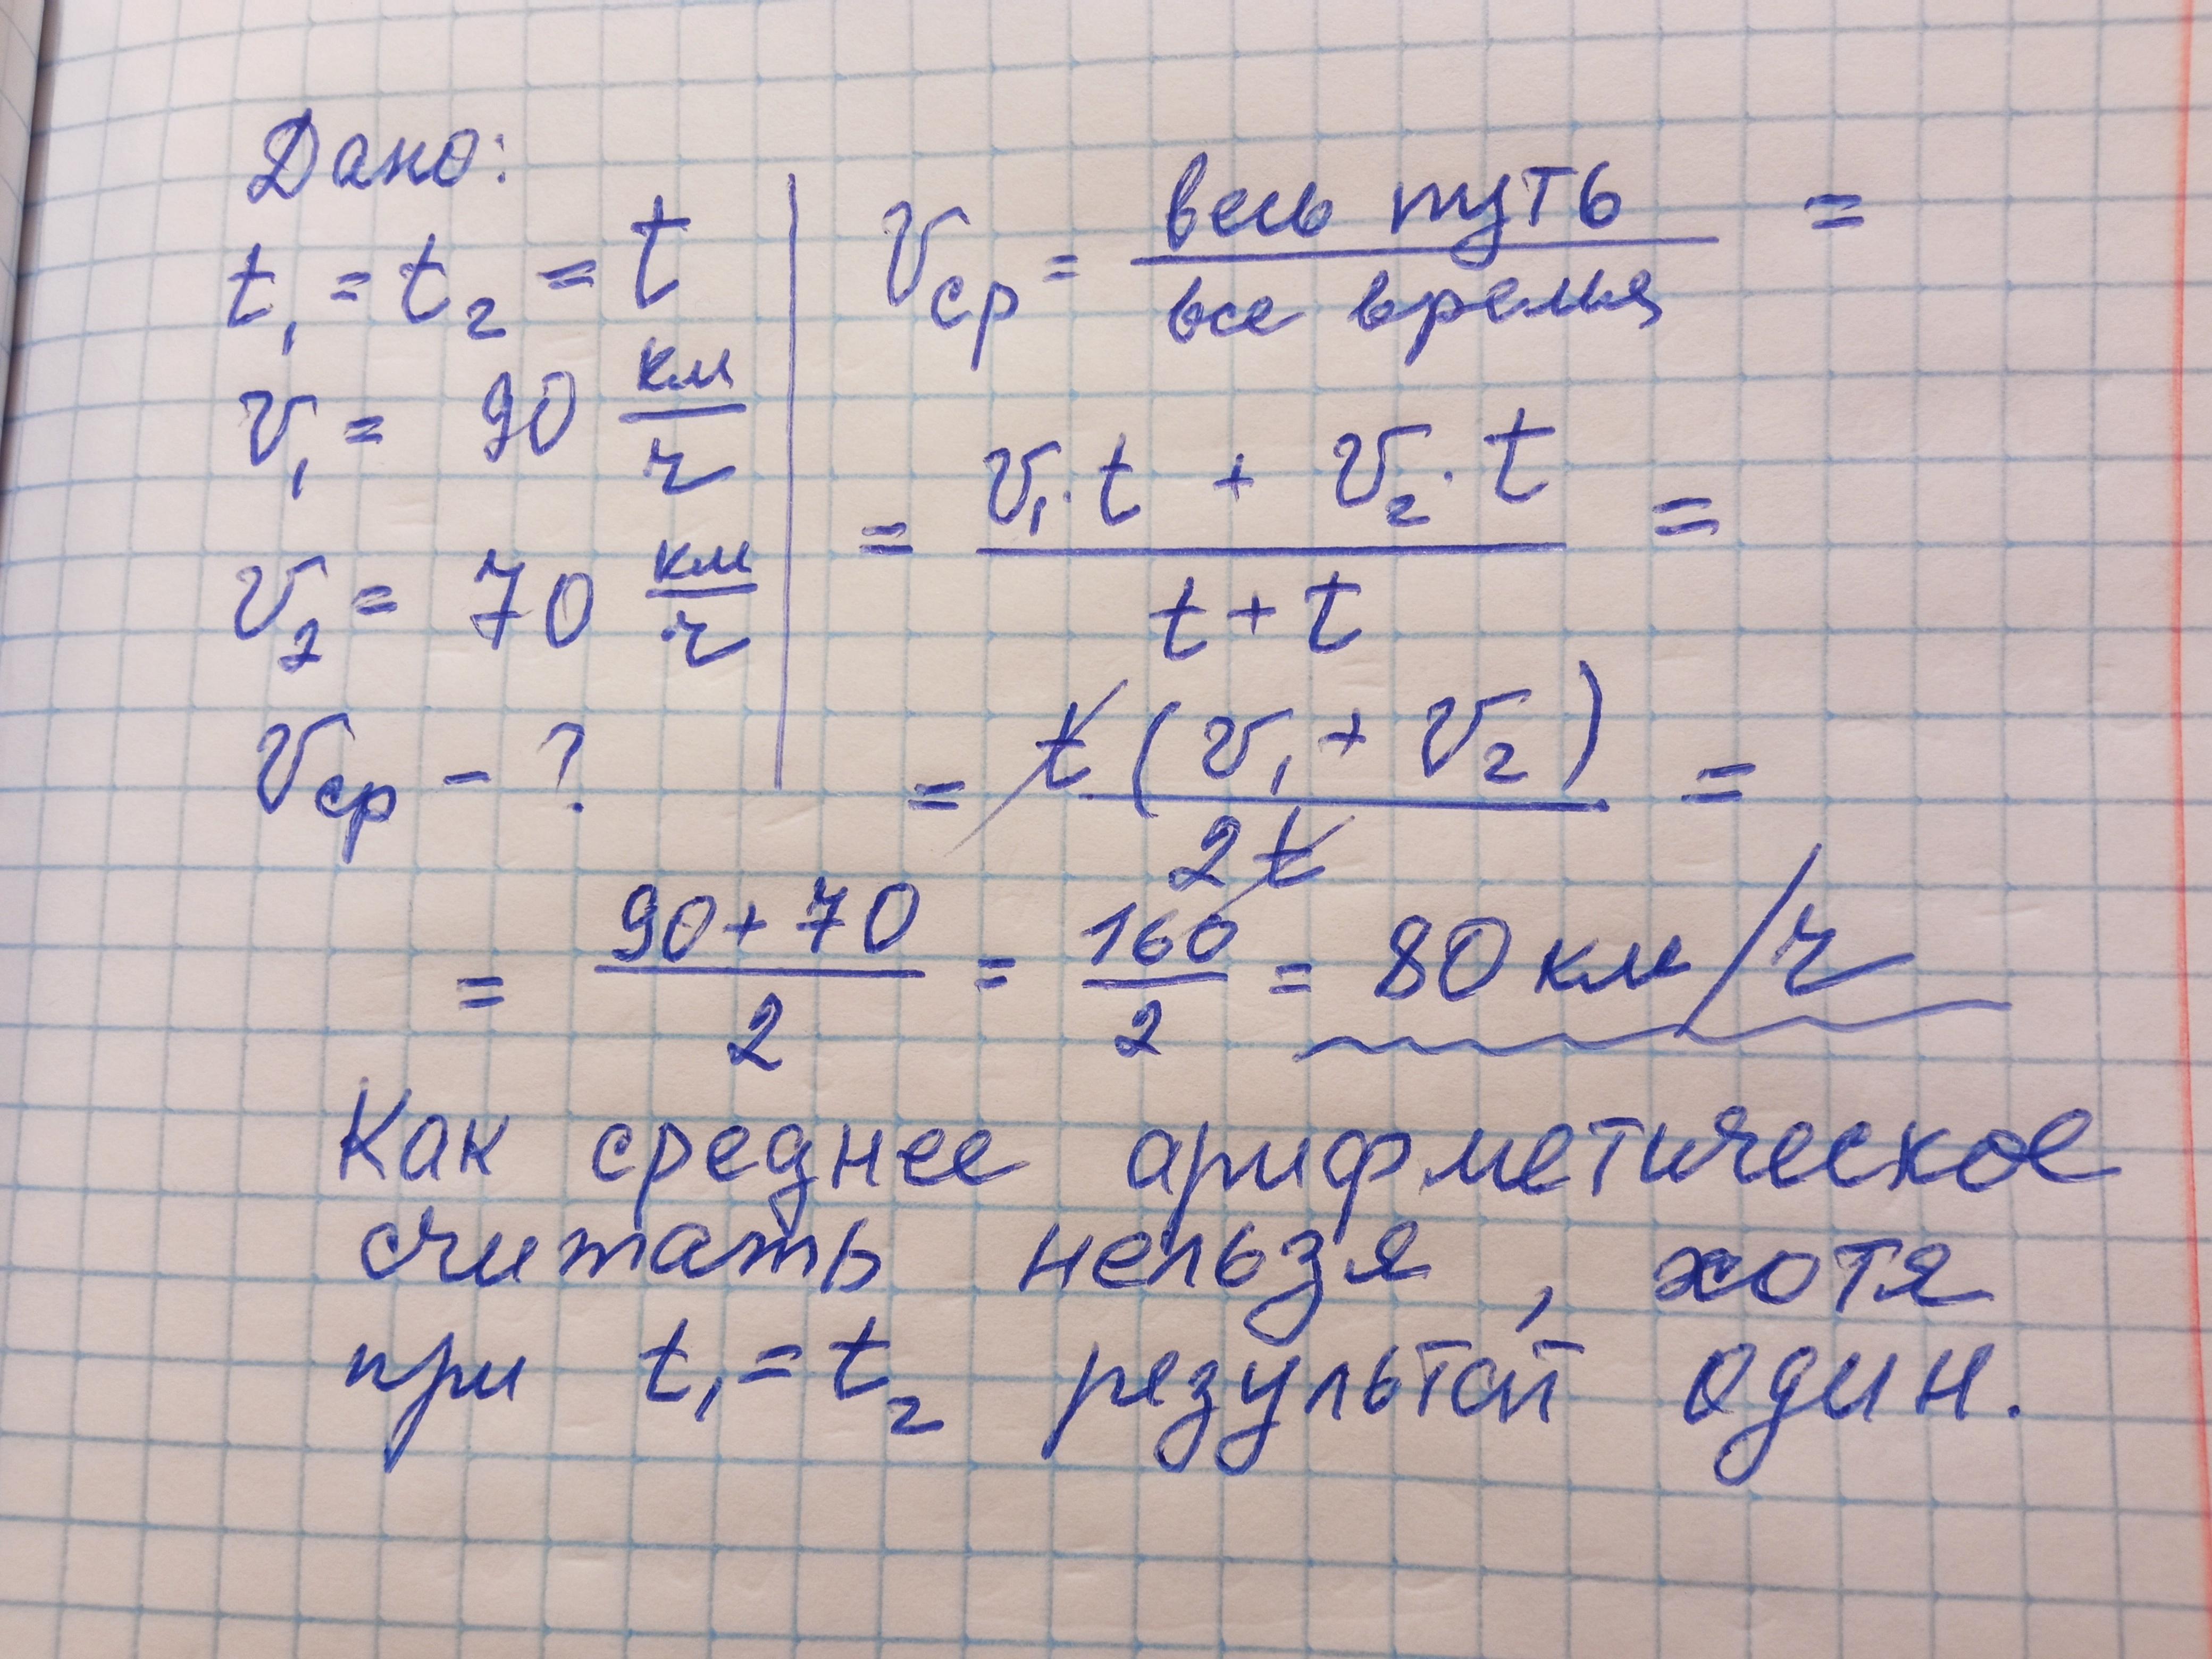 Дано:
t₁ = t₂ = t
v₁ = 90 км/ч
v₂ = 70 км/ч
vср - ?
vср = весь путь / все время =
= v₁·t + v₂·t / t + t =
= t(v₁ + v₂) / 2t =
= 90 + 70 / 2 = 160 / 2 = 80 км/ч
Как среднее арифметическое
считать нельзя, хотя
при t₁ = t₂ результат один.